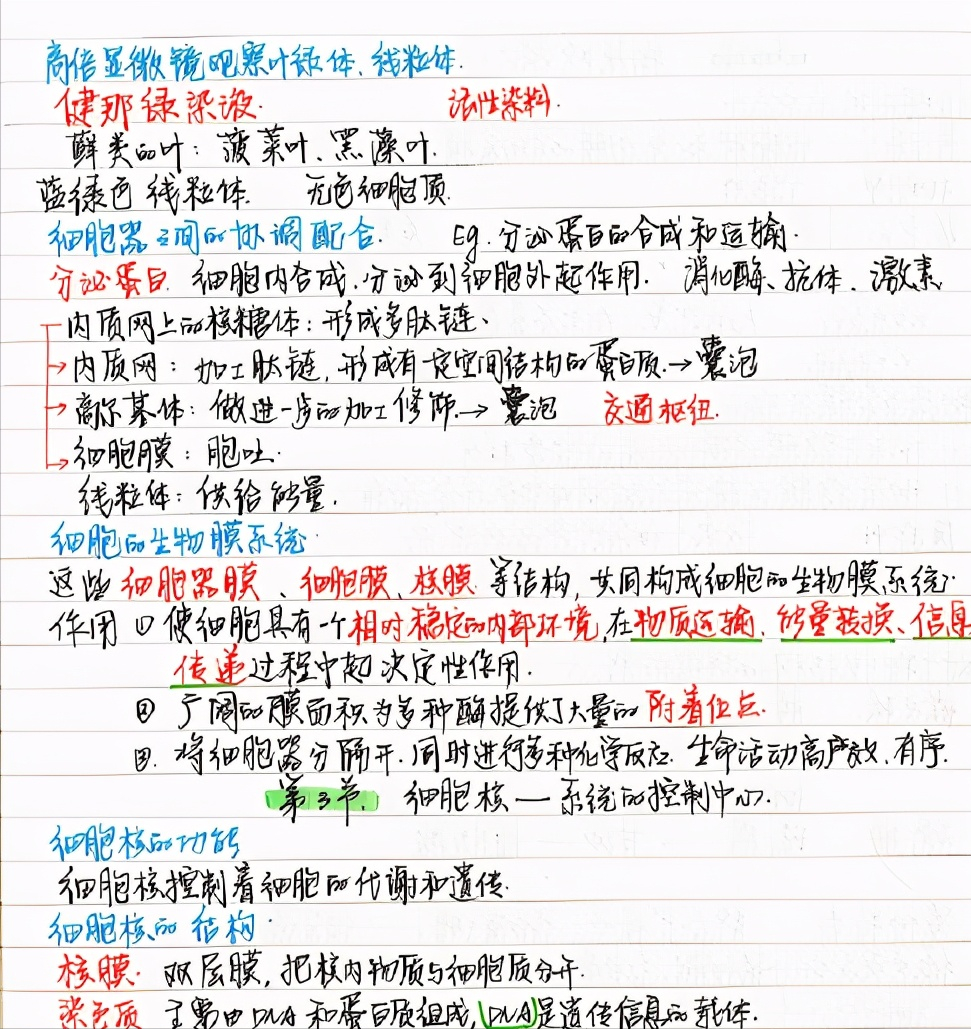 高倍显微镜观察叶绿体、线粒体.
健那绿染液. 活性染料.
藓类的叶：菠菜叶、黑藻叶.
蓝绿色 线粒体. 无色细胞质.
细胞器之间的协调配合. Eg. 分泌蛋白的合成和运输.
分泌蛋白 细胞内合成.分泌到细胞外起作用. 消化酶、抗体、激素
内质网上的核糖体：形成多肽链、
内质网：加工肽链,形成有一定空间结构的蛋白质.→囊泡
高尔基体：做进一步的加工修饰.→囊泡 交通枢纽.
细胞膜：胞吐.
线粒体：供给能量.
细胞的生物膜系统
这些细胞器膜、细胞膜、核膜等结构,共同构成细胞的生物膜系统.
作用 ① 使细胞具有一个相对稳定的内部环境,在物质运输、能量转换、信息
传递过程中起决定性作用.
② 广阔的膜面积为多种酶提供了大量的附着位点.
③. 将细胞器分隔开.同时进行多种化学反应. 生命活动高效、有序.
第3节. 细胞核—系统的控制中心.
细胞核的功能
细胞核控制着细胞的代谢和遗传.
细胞核的结构.
核膜. 双层膜,把核内物质与细胞质分开.
染色质 主要由DNA和蛋白质组成,DNA是遗传信息的载体.